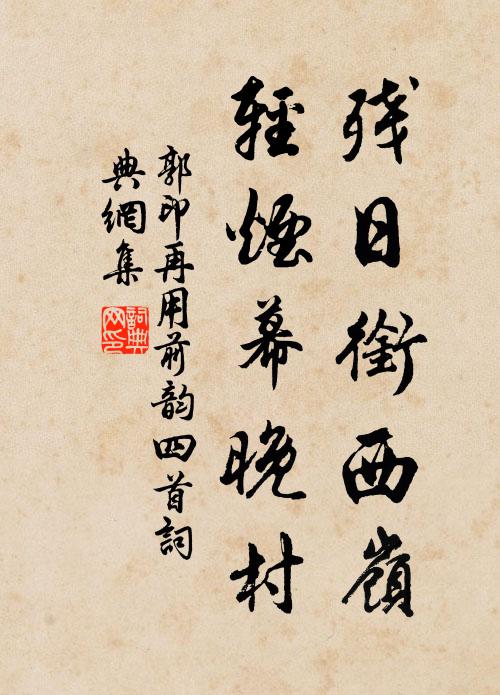 残日銜西嶺
輕煙幕晚村
郭印再用前韵四首詞
典網集
詞典
网印